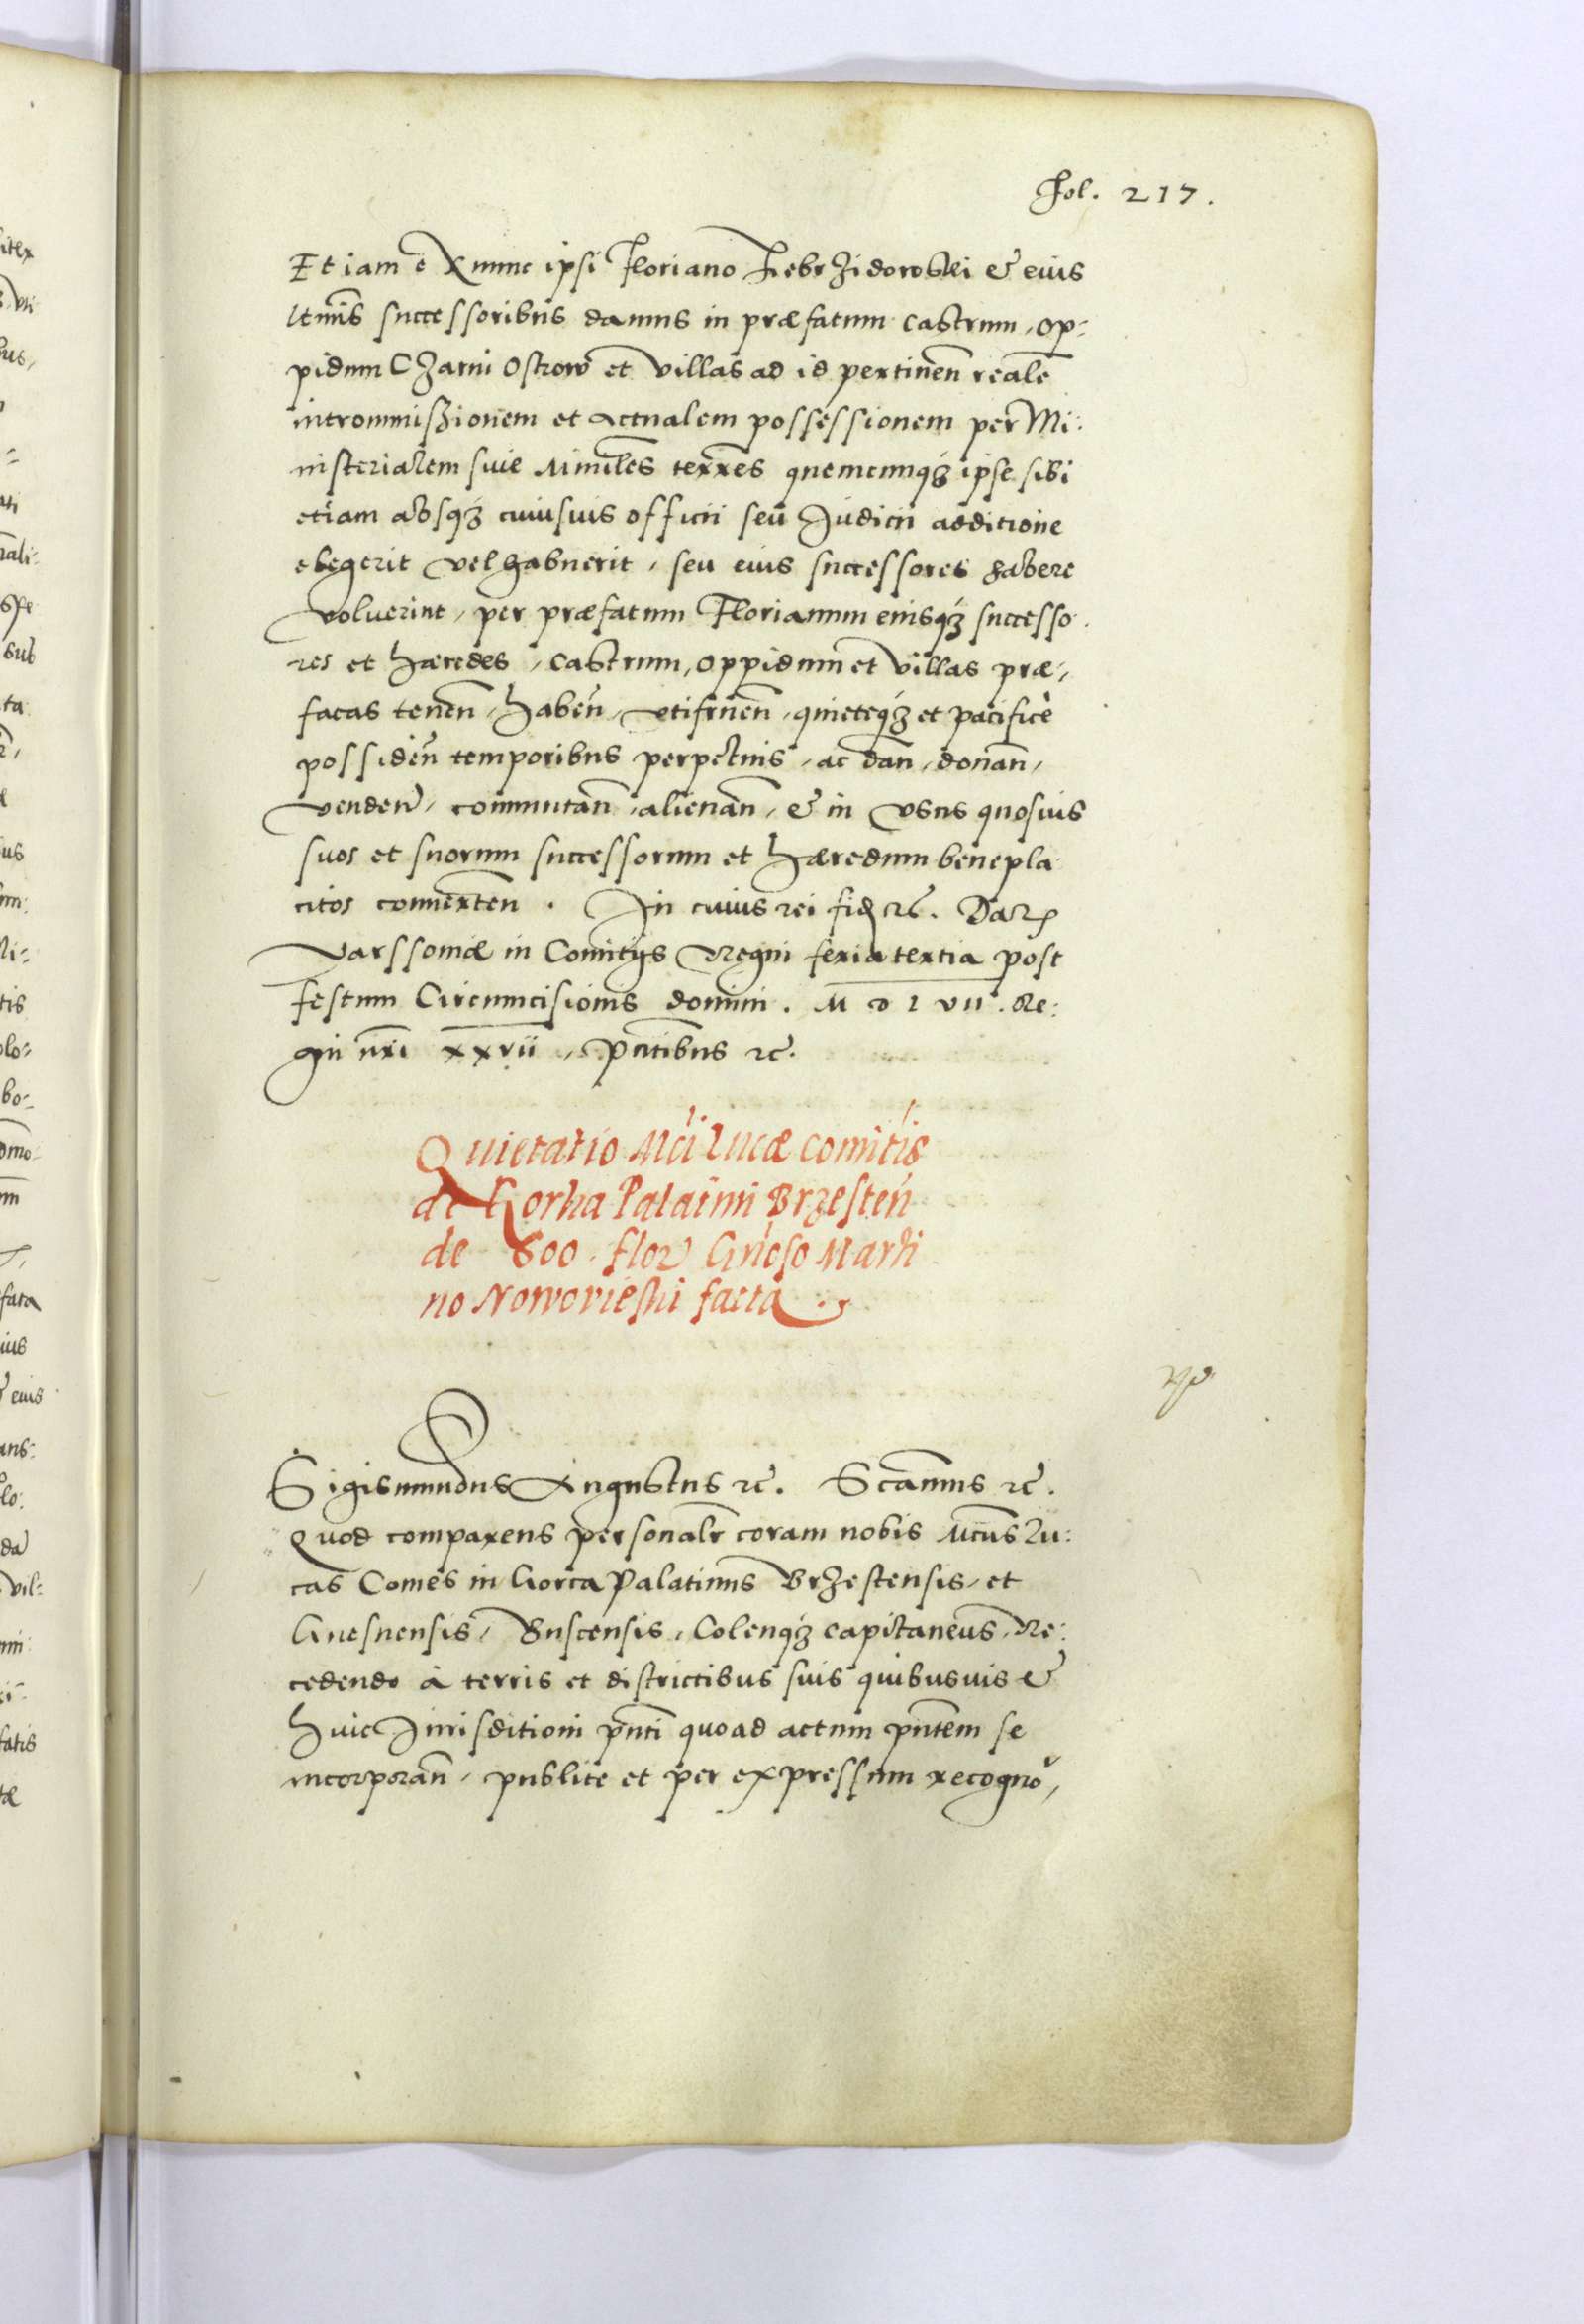 Fol. 217.
Et iam e Xnunc ipsi Floriano Zebrzidowski & eius
ltmis successoribus damus in præfatum castrum, op-
pidum CZarni Ostrow et villas ad id pertinen reale
intrommissionem et actualem possessionem per Mi:
nisterialem siue terres quemcunqz ipse sibi
etiam absqz cuiusuis officii seu Judicii additione
elegerit vel habuerit, seu eius successores habere
voluerint, per præfatum Florianum eiusqz successo.
res et hæredes, castrum, oppidum et villas præ,
facas tenen, haben, vtifruen, quieteqz et pacifice
possiden temporibus perpetuis, ac dan, donan,
venden, commutan, alienan, & in vsus quosuis
suos et suorum successorum et hæredum benepla
citos conuerten. In cuius rei fid rc. Dat
Varssoniæ in Comitijs Regni feria tertia post
festum Circumcisionis domini. M D L VII. Re:
gni nri xxvii, Pntibus rc.
Quietatio Mci Lucæ comitis
de Gorka Palatini Brzesten
de 800. flor Gnoso Marti
no Nowovieski facta.
Sigismundus Augustus rc. Scamus rc.
Quod comparens personalr coram nobis Mcus Lu:
cas Comes in Gorca Palatinus Brzestensis, et
Gnesnensis, Buscensis, Colenqz capitaneus, Re:
cedendo à terris et districtibus suis quibusuis &
huic Jurisditioni pnti quoad actum pntem se
incorporan, publice et per expressum recogno,